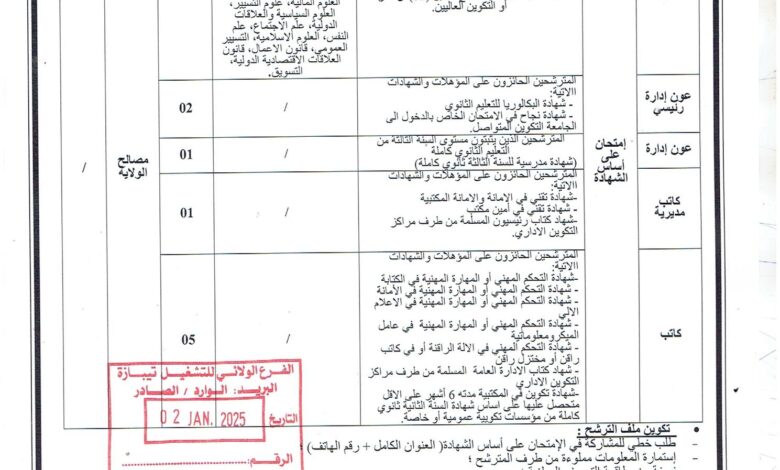 أو التكوين العاليين.
العلوم المالية، علوم التسيير،
العلوم السياسية والعلاقات
الدولية، علم الاجتماع، علم
النفس، العلوم الاسلامية، التسيير
العمومي، قانون الاعمال، قانون
العلاقات الاقتصادية الدولية،
التسويق.
إمتحان
على
أساس
الشهادة
مصالح
الولاية
/
عون إدارة
رئيسي
المترشحين الحائزون على المؤهلات والشهادات
الاتية:
- شهادة البكالوريا للتعليم الثانوي
- شهادة نجاح في الامتحان الخاص بالدخول الى
الجامعة التكوين المتواصل.
/
02
عون إدارة
المترشحين الذين يثبتون مستوى السنة الثالثة من
التعليم الثانوي كاملة
(شهادة مدرسية للسنة الثالثة ثانوي كاملة)
/
01
كاتب
مديرية
المترشحين الحائزون على المؤهلات والشهادات
الاتية:
-شهادة تقني في الامانة والامانة المكتبية
- شهادة تقني في أمين مكتب
-شهاد كتاب رئيسيون المسلمة من طرف مراكز
التكوين الاداري.
/
01
كاتب
المترشحين الحائزون على المؤهلات والشهادات
الاتية:
-شهادة التحكم المهني أو المهارة المهنية في الكتابة
- شهادة التحكم المهني أو المهارة المهنية في الأمانة
- شهادة التحكم المهني أو المهارة المهنية في الاعلام
الالي
- شهادة التحكم المهني أو المهارة المهنية في عامل
الميكرومعلوماتية
- شهادة التحكم المهني في الالة الراقنة أو في كاتب
راقن أو مختزل راقن
- شهاد كتاب الادارة العامة المسلمة من طرف مراكز
التكوين الاداري
-شهادة تكوين في المكتبية مدته 6 أشهر على الاقل
متحصل عليها على اساس شهادة السنة الثانية ثانوي
كاملة من مؤسسات تكوينية عمومية أو خاصة.
/
05
الفرع الولائي للتشغيل تيبازة
البريد: الوارد / الصادر
التاريخ
0 2 JAN. 2025
الرقم:
• تكوين ملف الترشح :
- طلب خطي للمشاركة في الإمتحان على أساس الشهادة( العنوان الكامل + رقم الهاتف)؛
- إستمارة المعلومات مملوءة من طرف المترشح ؛